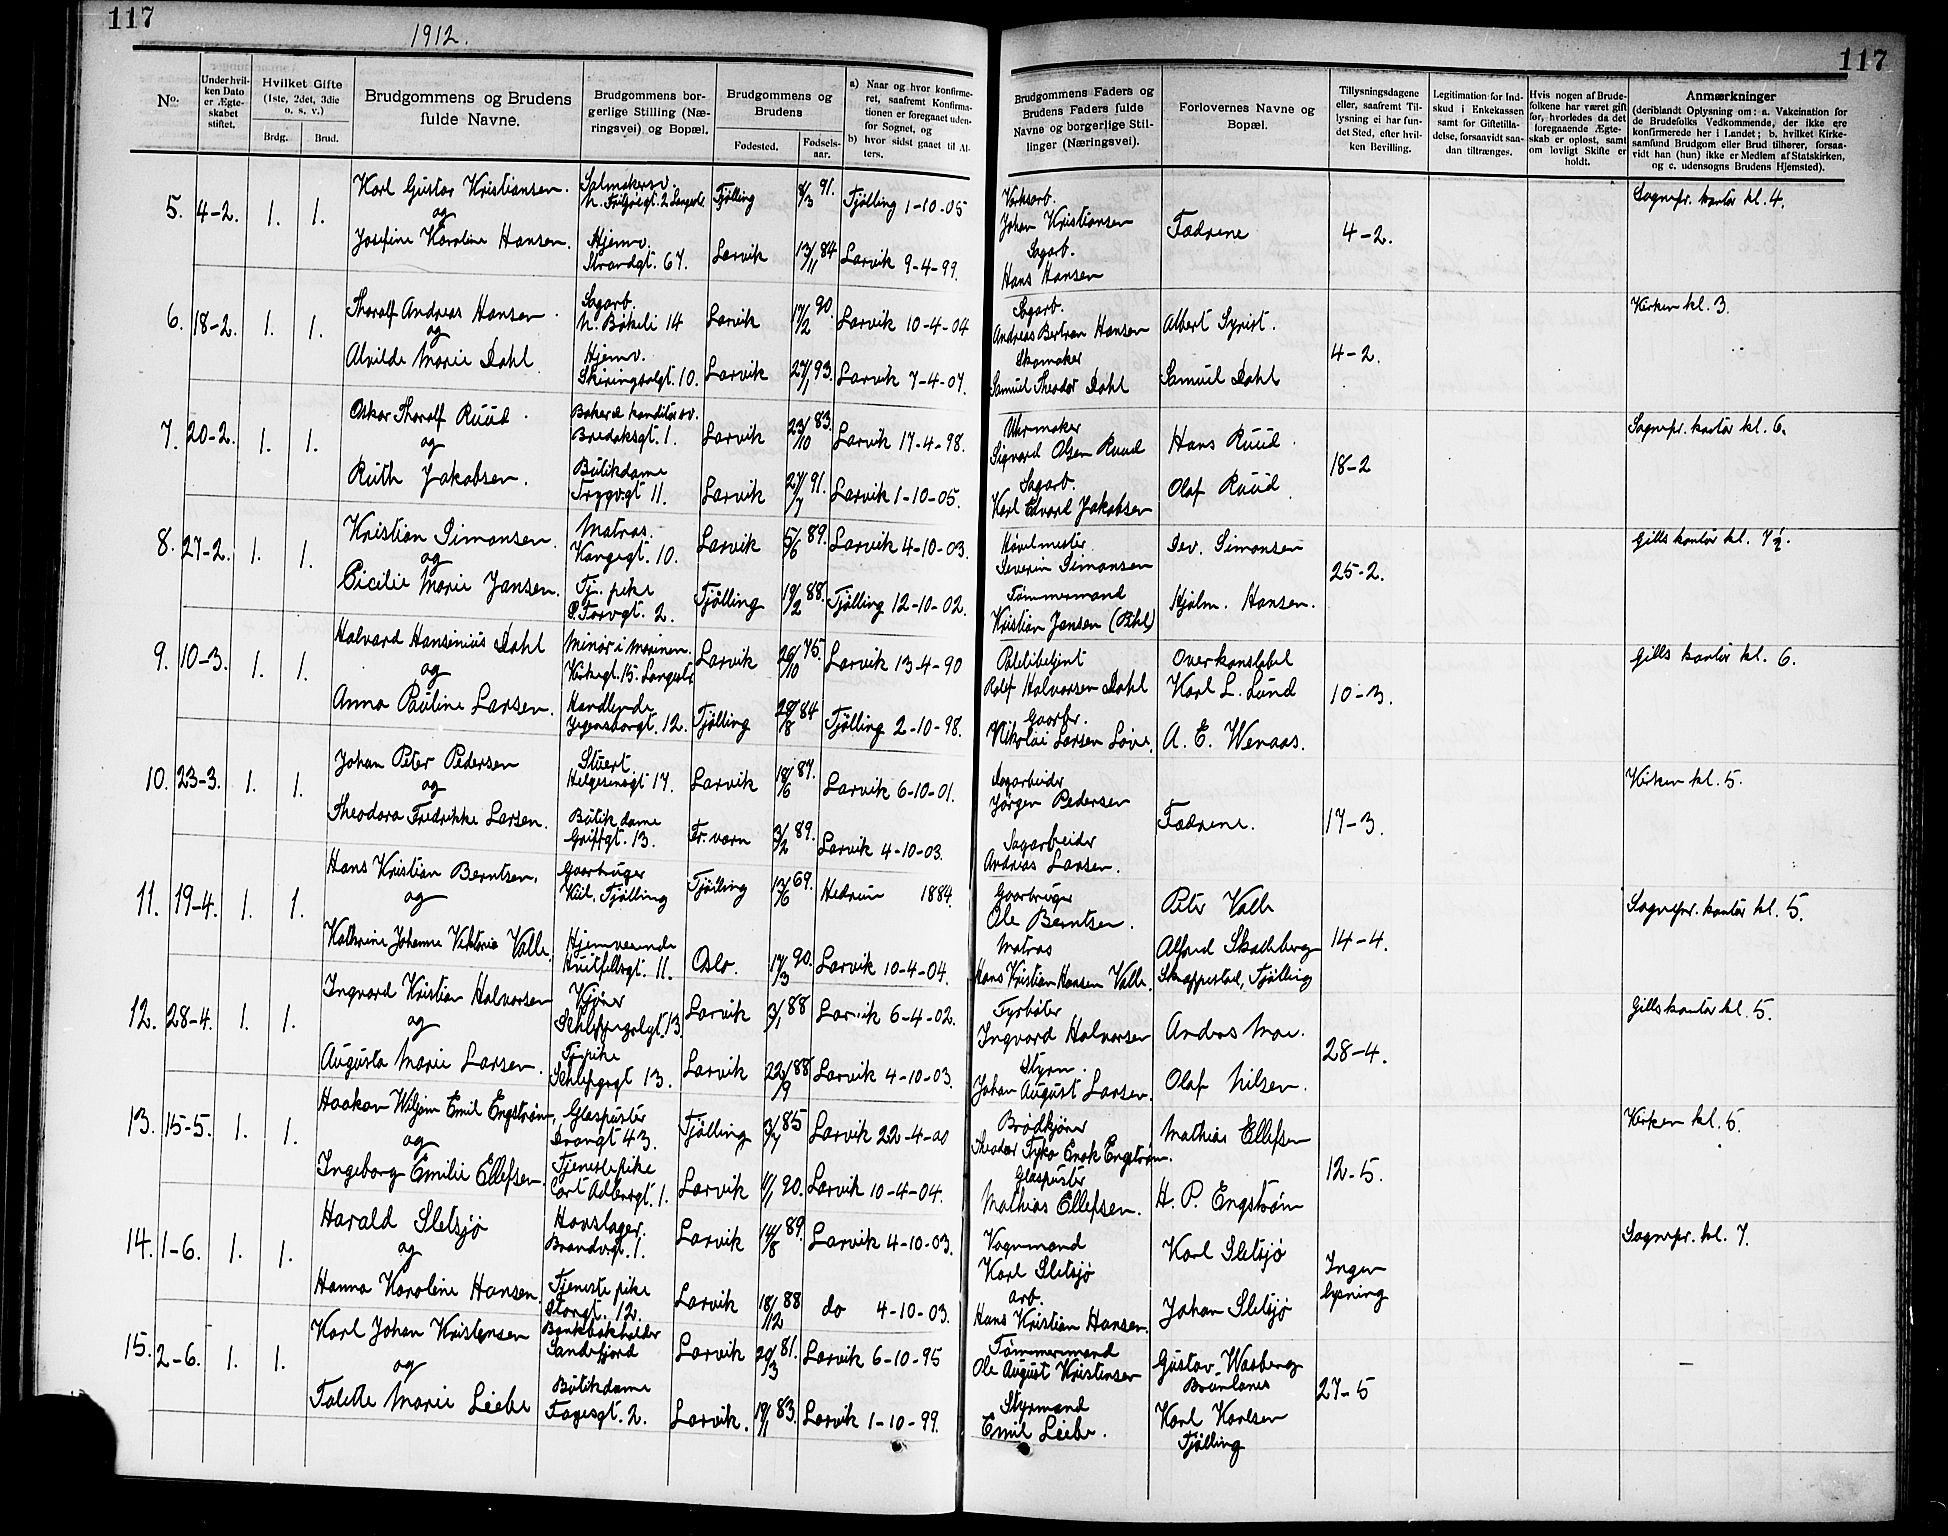 117
1912.
117
No.
Under hvil-
ken Dato
er Ægte-
skabet
stiftet.
Hvilket Gifte
(1ste, 2det, 3die
o. s. v.)
Brdg.
Brud.
Brudgommens og Brudens
fulde Navne.
Brudgommens bor-
gerlige Stilling (Næ-
ringsvei) og Bopæl.
Brudgommens og
Brudens
Fødested.
Fødsels-
aar.
a) Naar og hvor konfirme-
ret, saafremt Konfirma-
tionen er foregaaet uden-
for Sognet, og
b) hvor sidst gaaet til Al-
ters.
Brudgommens Faders og
Brudens Faders fulde
Navne og borgerlige Stil-
linger (Næringsvei).
Forlovernes Navne og
Bopæl.
Tillysningsdagene
eller, saafremt Til-
lysning ei har fun-
det Sted, efter hvil-
ken Bevilling.
Legitimation for Ind-
skud i Enkekassen
samt for Giftetilla-
delse, forsaavidt saa-
dan tiltrænges.
Hvis nogen af Brude-
folkene har været gift
før, hvorledes da det
foregaaende Ægte-
skab er opløst, samt
om lovligt Skifte er
holdt.
Anmærkninger
(deriblandt Oplysning om: a. Vakcination for
de Brudefolks Vedkommende, der ikke ere
konfirmerede her i Landet; b. hvilket Kirke-
samfund Brudgom eller Brud tilhører, forsaa-
vidt han (hun) ikke er Medlem af Statskirken,
og c. udensogns Brudens Hjemsted).
5. 4-2. 1. 1.
Karl Gustav Kristiansen.
og
Josefine Karoline Hansen.
Salmakersv.
Hjemv.
Strandgt. 67.
Tjølling 8/3 91. Tjølling 1-10-05
Larvik 13/11 84 Larvik 9-4-99.
Verksarb.
Johan Kristiansen
Sagarb.
Hans Hansen
Fædrene
4-2.
Sognepr. kontor kl. 4.
6. 18-2. 1. 1.
Thoralf Andreas Hansen.
og
Alvilde Marie Dahl
Sagarb.
N. Bøkeli 14
Hjemv.
Skiringsalgt. 10.
Larvik 17/2 90. Larvik 10-4-04
Larvik 27/1 93. Larvik 7-4-07.
Sagarb.
Andreas Bertran Hansen
Skomaker
Samuel Theodor Dahl
Albert Syrist.
Samuel Dahl
4-2.
Kirken kl. 3.
7. 20-2. 1. 1.
Oskar Thoralf Ruud.
og
Ruth Jakobsen.
Baker & konditor sv.
Bredoksgt. 1.
Butikdame
Trygvgt 11.
Larvik 23/10 83. Larvik 17-4-98.
Larvik 27/7 91. Larvik 1-10-05.
Uhrmaker
Sigvard Olsen Ruud
Sagarb.
Karl Edvard Jakobsen
Hans Ruud.
Olaf Ruud.
18-2
Sognepr. kontor kl. 6.
8. 27-2. 1. 1.
Kristian Simonsen.
og
Cicilie Marie Jansen.
Matros.
Kongegt. 10.
Tj. pike
Ø. Torvgt. 2.
Larvik 5/6 89. Larvik 4-10-03.
Tjølling 19/2 88. Tjølling 12-10-02.
Høvelmester
Severin Simonsen
Tømmermand
Kristian Jansen (Bthl)
Sev. Simonsen
Hjalm. Hansen.
25-2.
Gills kontor kl. 7½.
9. 10-3. 1. 1.
Halvard Hansenius Dahl
og
Anna Pauline Larsen.
Minør i Marinen.
Kirkegt. 15. Langestr.
Handlende
Jegersborggt. 12.
Larvik 26/10 75. Larvik 13-4-90
Tjølling 28/8 84 Tjølling 2-10-98.
Politibetjent
Rolf Halvorsen Dahl
Gaarbr.
Nikolai Larsen Love.
Overkonstabel
Karl L. Lund
A. E. Wenaas.
10-3.
Gills kontor kl. 6.
10. 23-3. 1. 1.
Johan Peter Pedersen
og
Theodora Fredrikke Larsen.
Stuert
Helgesensgt 17.
Butikdame
Griffgt. 13.
Larvik 18/6 87. Larvik 6-10-01.
Fr. værn 3/2 89. Larvik 4-10-03.
Sagarbeider
Jørgen Pedersen
Sagarbeider
Andreas Larsen.
Fædrene.
17-3.
Kirken kl. 5.
11. 19-4. 1. 1.
Hans Kristian Berntsen.
og
Kathrine Johanne Viktoria Valle.
Gaarbruger
Kiil, Tjølling
Hjemværende
Huitfellsgt. 11.
Tjølling 13/6 69. Hedrum 1884.
Oslo. 17/3 90. Larvik 10-4-04.
Gaarbruger
Ole Berntsen.
Matros
Hans Kristian Hansen Valle.
Peter Valle
Alfred Skalleberg
Skappestad, Tjølling
14-4.
Sognepr. kontor kl. 5.
12. 28-4. 1. 1.
Ingvard Kristian Halvorsen
og
Augusta Marie Larsen.
Tjpike
Larvik 3/1 88 Larvik 6-4-02.
Larvik 22/9 88 Larvik 4-10-03.
Fyrbøter
Ingvard Halvorsen
Styrm.
Johan August Larsen.
Andres Moe.
Olaf Nilsen.
28-4.
Gills kontor kl. 5.
13. 15-5. 1. 1.
Haakon Wiljam Emil Engstrøm.
og
Ingeborg Emilie Ellefsen.
Glaspuster
Drongt 43.
Tjenestepike
Cort Adlersgt. 1.
Tjølling 3/7 85 Larvik 22-4-00
Larvik 1/1 90. Larvik 10-4-04.
Brødkjører
Theodor Fyko Enok Engstrøm.
Glaspuster
Mathias Ellefsen.
Mathias Ellefsen
H. P. Engstrøm
12-5.
Kirken kl. 5.
14. 1-6. 1. 1.
Harald Sletsjø
og
Hanna Karoline Hansen.
Hovslager.
Brandvgt. 1.
Tjenestepike
Storgt. 12.
Larvik 14/8 89. Larvik 4-10-03.
Larvik 18/12 88 do 4-10-03.
Vognmand
Karl Sletsjø
arb.
Hans Kristian Hansen.
Karl Sletsjø
Johan Sletsjø
Ingen
lysning
Sognepr. kl. 7.
15. 2-6. 1. 1.
Karl Johan Kristensen
og
Talette Marie Liebe
Bankbokholder
Sandefjord
Butikdame
Fayesgt. 2.
Larvik 20/3 81. Larvik 6-10-95
Larvik. 19/1 83. Larvik 1-10-99.
Tømmermand
Ole August Kristensen
Styrmand
Emil Liebe.
Gustav Wasberg
Brunlanes
Karl Karlsen
Tjølling
27-5
—